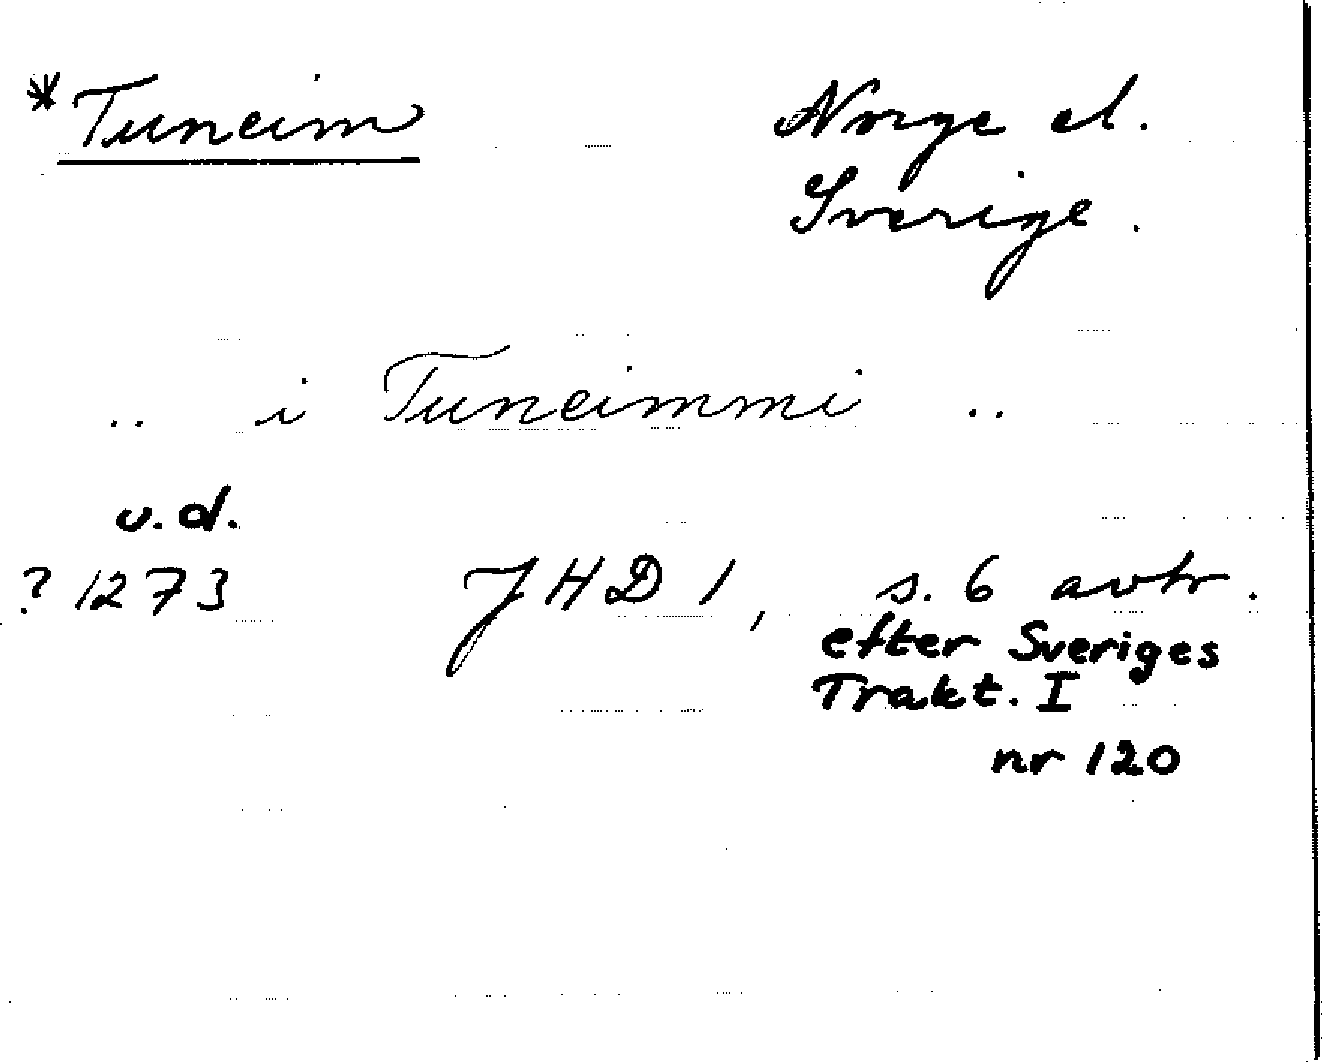 *Tuneim
Norge el.
Sverige.
.. i Tuneimmi ..
u.d.
? 1273 JHD 1, s. 6 avtr.
efter Sveriges
Trakt. I
nr 120